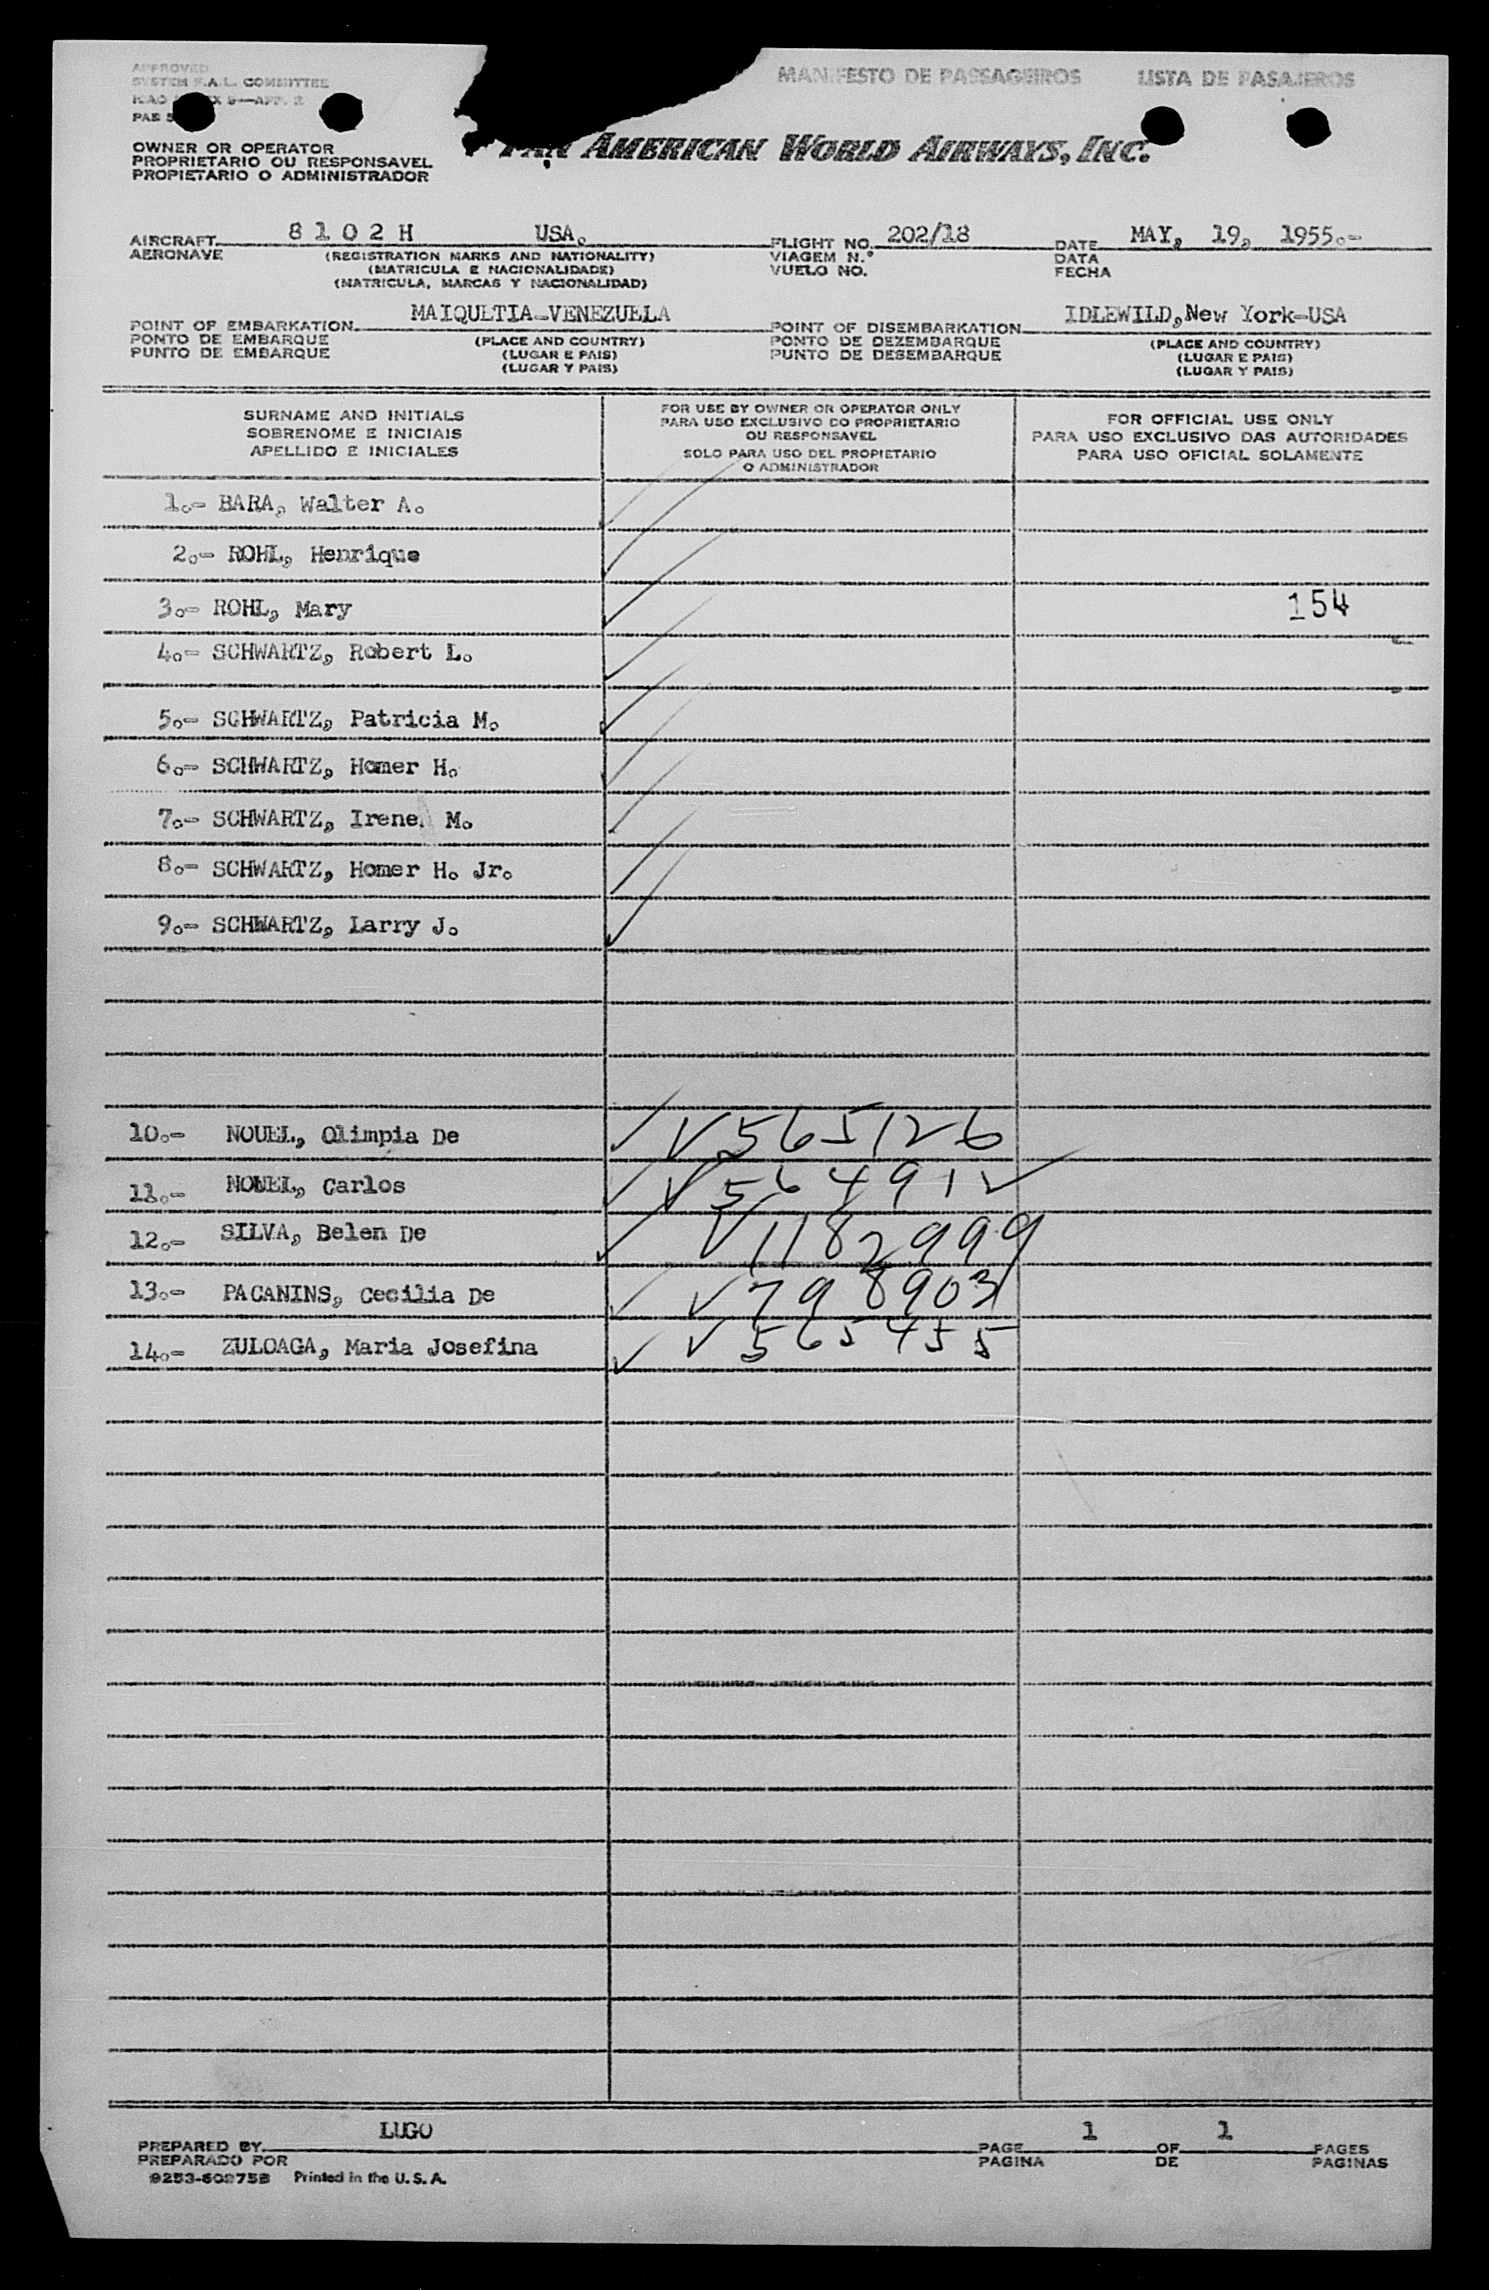 APPROVED MANIFESTO DE PASSAGEIROS LISTA DE PASAJEROS
SYSTEM F.A.L. COMMITTEE
OWNER OR OPERATOR
PROPRIETARIO OU RESPONSAVEL
PROPIETARIO O ADMINISTRADOR
PAN AMERICAN WORLD AIRWAYS, INC.
AIRCRAFT 8 1 0 2 H USA. FLIGHT NO. 202/18 DATE MAY, 19, 1955.-
AERONAVE (REGISTRATION MARKS AND NATIONALITY) VIAGEM N.º DATA
(MATRICULA E NACIONALIDADE) VUELO NO. FECHA
(MATRICULA, MARCAS Y NACIONALIDAD)
POINT OF EMBARKATION MAIQUETIA-VENEZUELA POINT OF DISEMBARKATION IDLEWILD, New York-USA
PONTO DE EMBARQUE (PLACE AND COUNTRY) PONTO DE DEZEMBARQUE (PLACE AND COUNTRY)
PUNTO DE EMBARQUE (LUGAR E PAIS) PUNTO DE DESEMBARQUE (LUGAR E PAIS)
(LUGAR Y PAIS) (LUGAR Y PAIS)
SURNAME AND INITIALS
SOBRENOME E INICIAIS
APELLIDO E INICIALES
FOR USE BY OWNER OR OPERATOR ONLY
PARA USO EXCLUSIVO DO PROPRIETARIO
OU RESPONSAVEL
SOLO PARA USO DEL PROPIETARIO
O ADMINISTRADOR
FOR OFFICIAL USE ONLY
PARA USO EXCLUSIVO DAS AUTORIDADES
PARA USO OFICIAL SOLAMENTE
1.- BARA, Walter A.
2.- ROHL, Henrique
3.- ROHL, Mary 154
4.- SCHWARTZ, Robert L.
5.- SCHWARTZ, Patricia M.
6.- SCHWARTZ, Homer H.
7.- SCHWARTZ, Irene M.
8.- SCHWARTZ, Homer H. Jr.
9.- SCHWARTZ, Larry J.
10.- NOUEL, Olimpia De ✓ ✓ 565126
11.- NOUEL, Carlos ✓ ✓ 564912
12.- SILVA, Belen De ✓ ✓ 1182999
13.- PACANINS, Cecilia De ✓ ✓ 798903
14.- ZULOAGA, Maria Josefina ✓ ✓ 565455
PREPARED BY LUGO PAGE 1 OF 1 PAGES
PREPARADO POR PAGINA DE PAGINAS
9253-60275B Printed in the U.S.A.